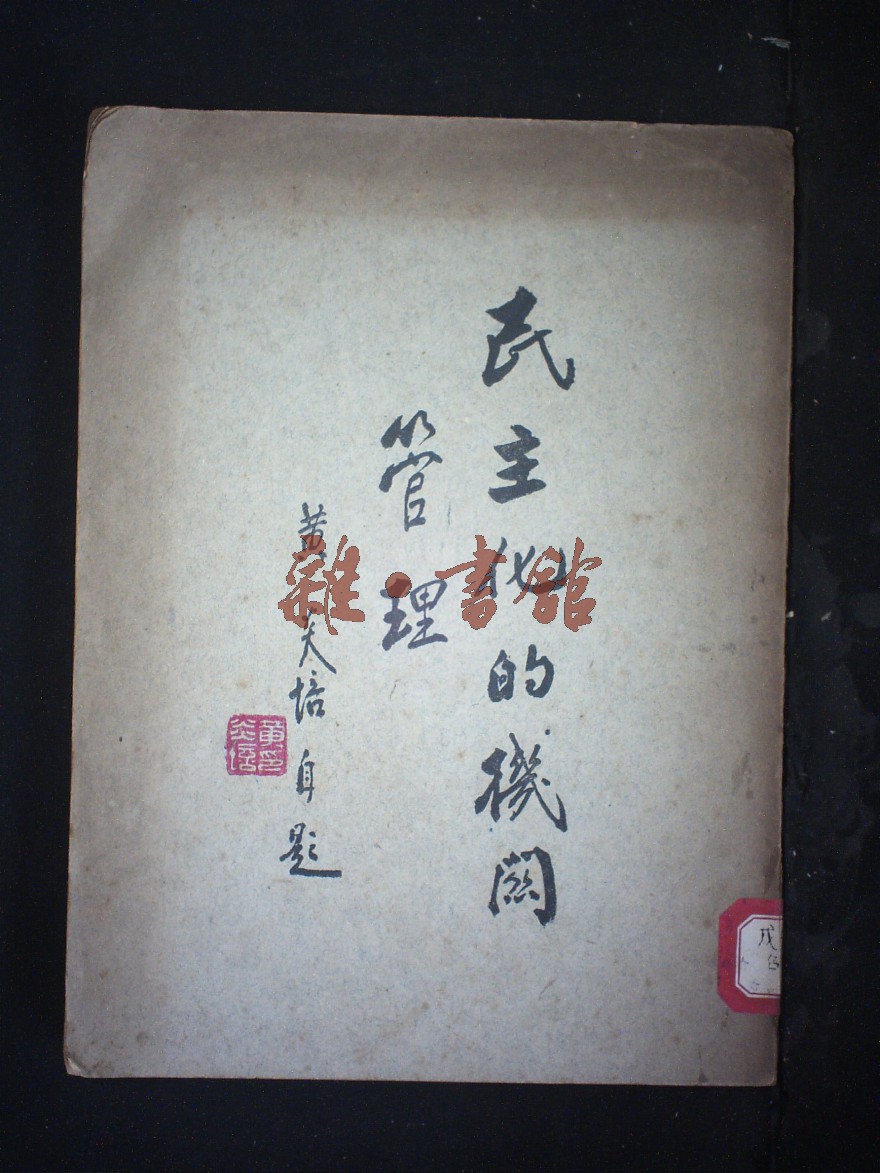 民主化的機關
管理
黃炎培自題
黃炎培印
雜·書館